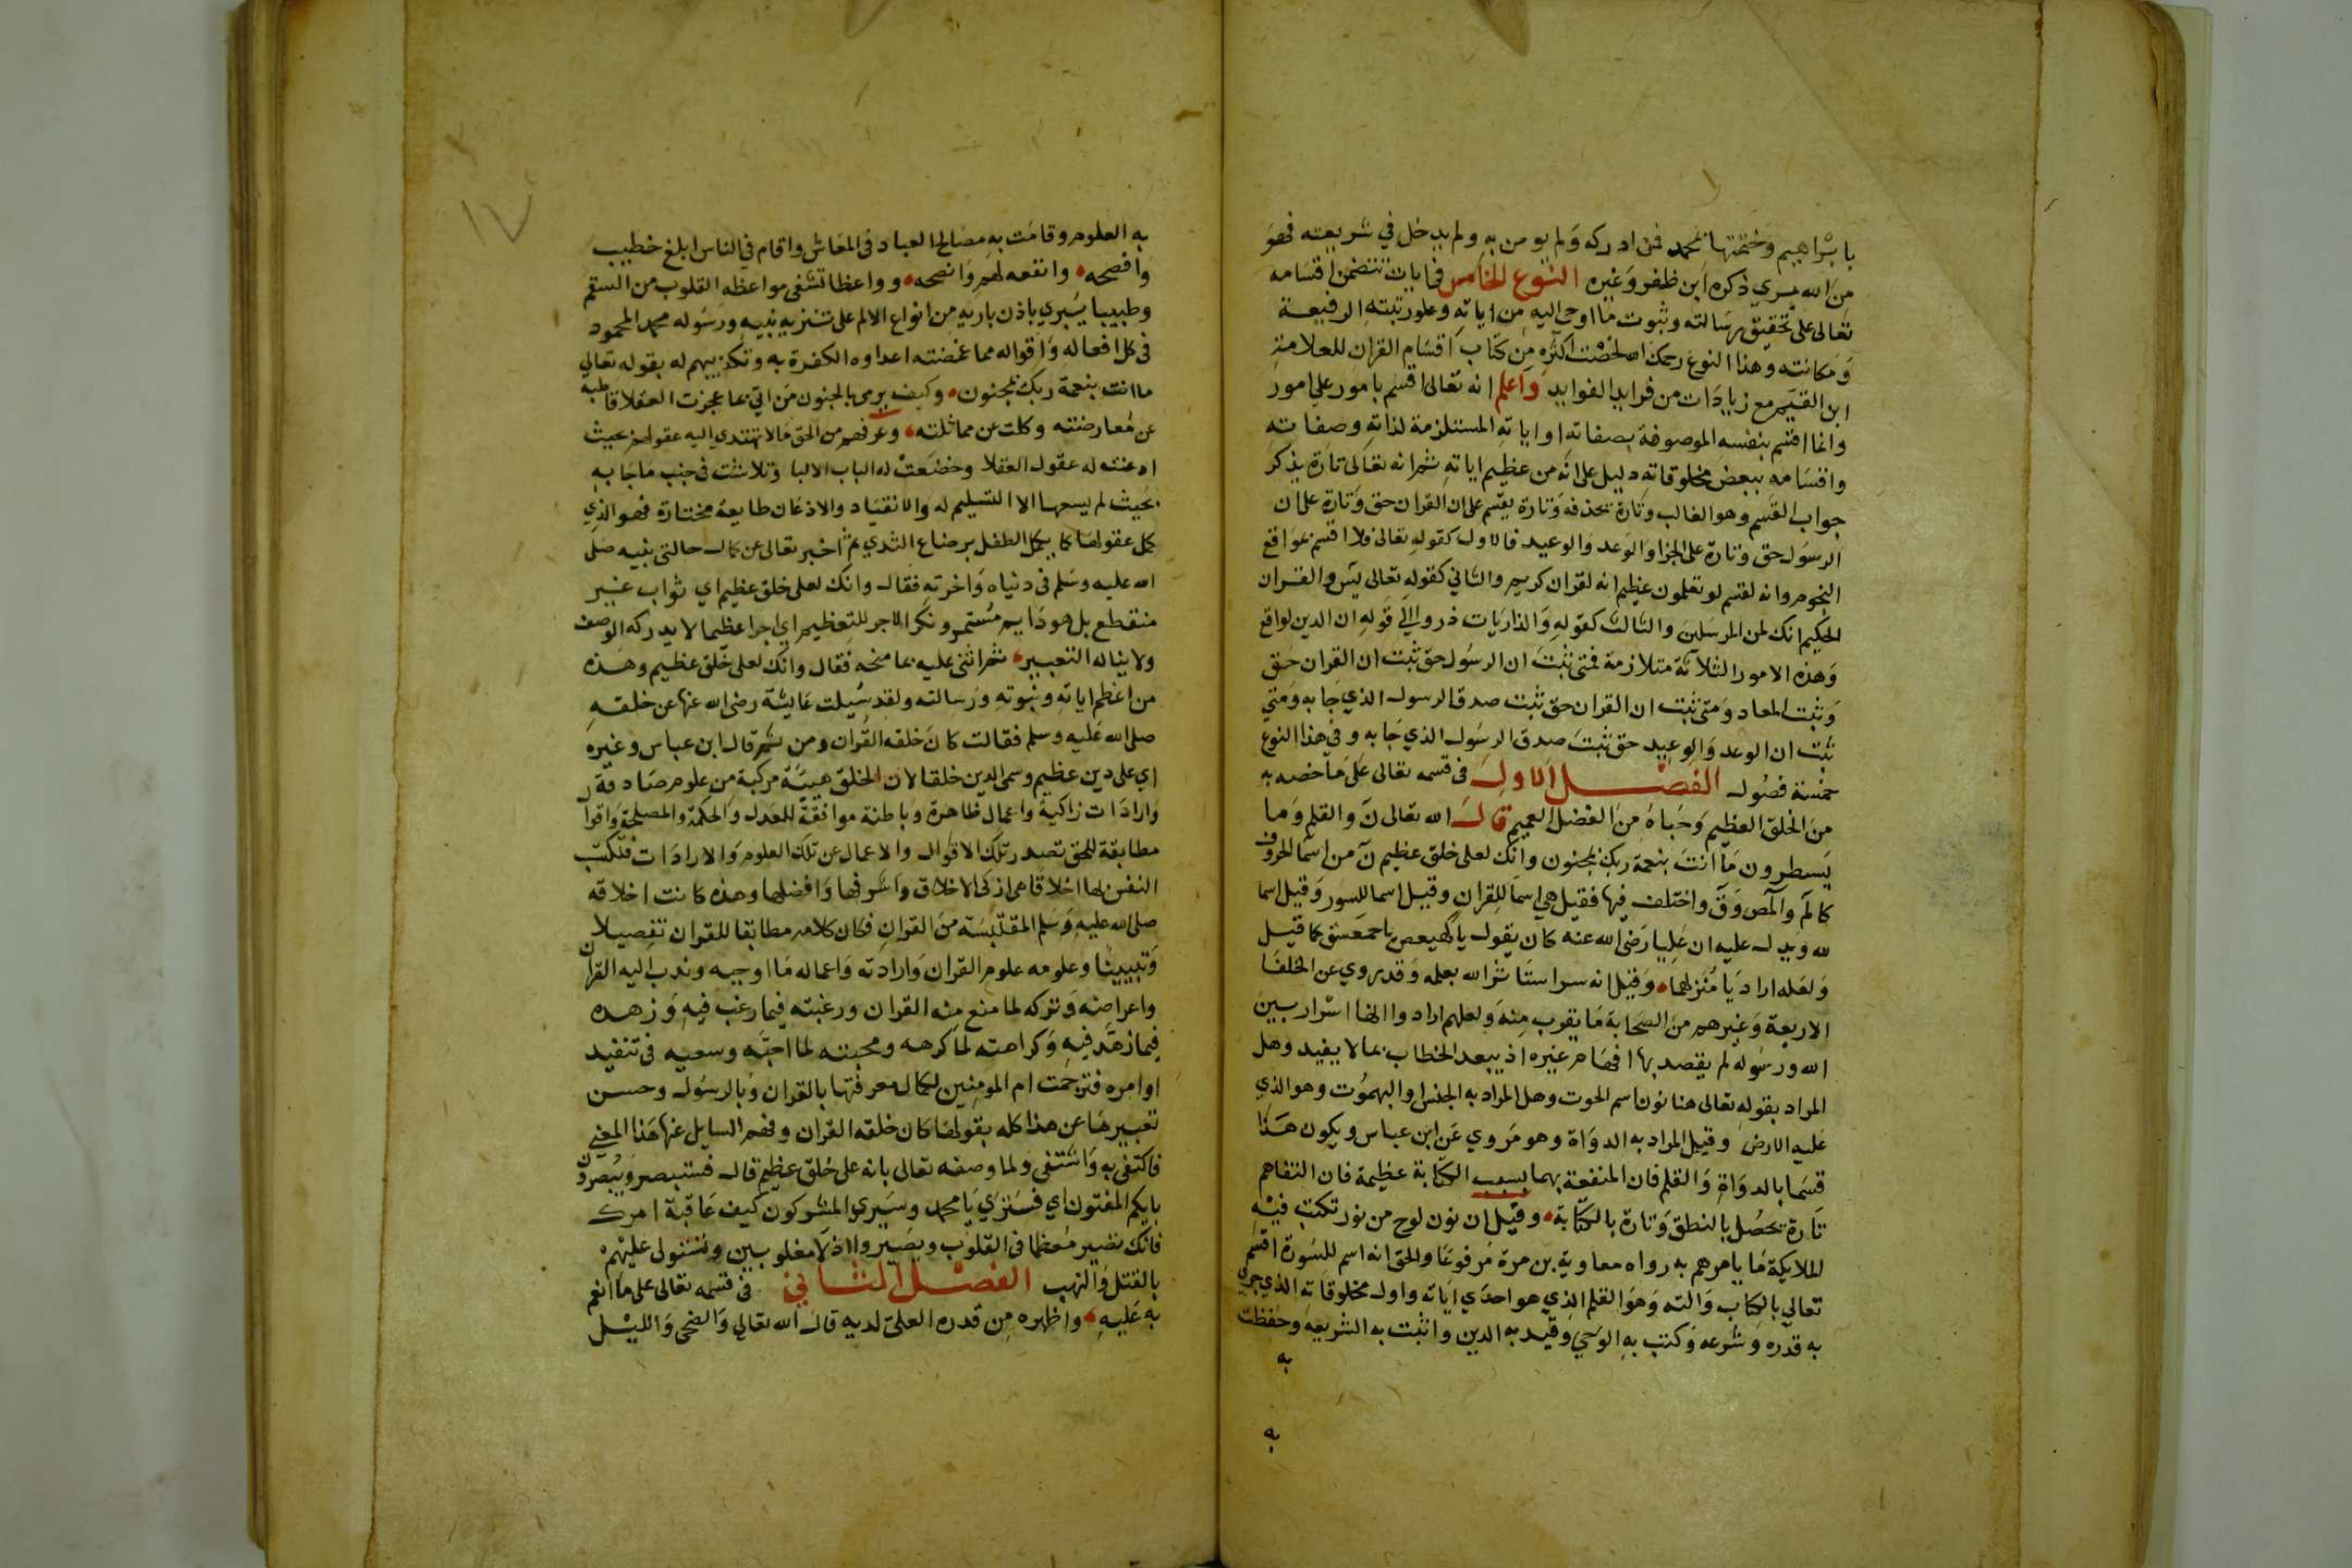 بابراهيم وختمتها بمحمد فمن ادركه ولم يومن به ولم يدخل في شريعته فهو
من الله بري ذكره ابن ظفر وغيره النوع الخامس في ايات تتضمن اقسامه
تعالى على تحقيق رسالته وثبوت ما اوحى اليه من اياته وعلو رتبته الرفيعة
ومكانته وهذا النوع رحمك الله لخصت اكثره من كتاب اقسام القران للعلامة
ابن القيم مع زيادات من فرايد الفوايد واعلم انه تعالى اقسم بامور على امور
وانما اقسم بنفسه الموصوفة بصفاته او اياته المستلزمة لذاته وصفاته
واقسامه ببعض مخلوقاته دليل على انه من عظيم اياته ثم انه تعالى تارة يذكر
جواب القسم وهو الغالب وتارة يحذفه وتارة يقسم على ان القران حق وتارة على ان
الرسول حق وتارة على الجزا والوعد والوعيد فالاول كقوله تعالى فلا اقسم بمواقع
النجوم وانه لقسم لو تعلمون عظيم انه لقران كريم والثاني كقوله تعالى يس والقران
الحكيم انك لمن المرسلين والثالث كقوله والذاريات ذروا الى قوله ان الدين لواقع
وهذه الامور الثلاثة متلازمة فمتى ثبت ان الرسول حق ثبت ان القران حق
وثبت المعاد ومتى ثبت ان القران حق ثبت صدق الرسول الذي جا به ومتى
ثبت ان الوعد والوعيد حق ثبت صدق الرسول الذي جا به وفي هذا النوع
خمسة فصول الفصل الاول في قسمه تعالى على ما خصه به
من الخلق العظيم وحباه من الفضل العميم قال الله تعالى ن والقلم وما
يسطرون ما انت بنعمة ربك بمجنون وانك لعلى خلق عظيم ن من اسما الحروف
كالم والمص وق واختلف فيها فقيل هي اسما للقران وقيل اسما للسور وقيل اسما
لله ويدل عليه ان عليا رضى الله عنه كان يقول يا كهيعص يا حمعسق كما قيل
ولعله اراد يا منزلهما وقيل انه سر استاثر الله بعلمه وقد روي عن الخلفا
الاربعة وغيرهم من الصحابة ما يقرب منه ولعلهم ارادوا انها اسرار بين
الله ورسوله لم يقصد بها افهام غيره اذ يبعد الخطاب بما لا يفيد وهل
المراد بقوله تعالى هنا نون اسم الحوت وهل المراد به الجنس او البهموت وهو الذي
عليه الارض وقيل المراد به الدواة وهو مروي عن ابن عباس ويكون هذا
قسما بالدواة والقلم فان المنفعة بهما بسبب الكتابة عظيمة فان التفاهم
تارة تحصل بالنطق وتارة بالكتابة وقيل ان نون لوح من نور تكتب فيه
الملايكة ما يامرهم به رواه معاوية بن مرة مرفوعا والحق انه اسم للسورة اقسم
تعالي بالكتاب والته وهو القلم الذي هو احدى اياته واول مخلوقاته الذي جرى
به قدره وشرعه وكتب به الوحي وقيد به الدين واثبت به الشريعة وحفظت
به
به
١٧
به العلوم وقامت به مصالح العباد في المعاش واقام في الناس ابلغ خطيب
وافصحه وانفعه لهم وانصحه وواعظا تشفى مواعظه القلوب من السقم
وطبيبا يبري باذن باريه من انواع الالم على تنزيه نبيه ورسوله محمد المحمود
في كل افعاله واقواله مما غمضته اعداوه الكفرة به وتكذيبهم له بقوله تعالي
ما انت بنعمة ربك بمجنون وكيف يرمى بالجنون من اتي بما عجزت العقلا قاطبة
عن معارضته وكلت عن مماثلته وعرفهم من الحق مالا تهتدي اليه عقولهم بحيث
اذعنت له عقول العقلا وخضعت له الباب الالبا وتلاشت في جنب ما جا به
بحيث لم يسعها الا التسليم له والانقياد والاذعان طايعة مختارة فهو الذي
كمل عقولها كما يكمل الطفل برضاع الثدي ثم اخبر تعالى عن كمال حالتي نبيه صلى
الله عليه وسلم في دنياه واخرته فقال وانك لعلى خلق عظيم اي ثواب غير
منقطع بل هو دايم مستمر ونكر الاجر للتعظيم اي اجرا عظيما لا يدركه الوصف
ولا يناله التعبير ثم اثنى عليه بما منحه فقال وانك لعلى خلق عظيم وهذه
من اعظم اياته ونبوته ورسالته ولقد سيلت عايشة رضى الله عنها عن خلقه
صلى الله عليه وسلم فقالت كان خلقه القران ومن ثم قال ابن عباس وغيره
اي على دين عظيم وسمى الدين خلقا لان الخلق هيئة مركبة من علوم صادقة
وارادات زاكية واعمال ظاهرة وباطنة موافقة للعدل والحكمة والمصلحة واقوال
مطابقة للحق تصدر تلك الاقوال والاعمال عن تلك العلوم والارادات فتكتسب
النفس بها اخلاقا هي ازكى الاخلاق واشرفها وافضلها وهذه كانت اخلاقه
صلى الله عليه وسلم المقتبسة من القران فكان كلامه مطابقا للقران تفصيلا
وتبيينا وعلومه علوم القران وارادته واعماله ما اوجبه وندب اليه القران
واعراضه وتركه لما منع منه القران ورغبته فيما رغب فيه وزهده
فيما زهد فيه وكراهته لما كرهه ومحبته لما احبه وسعيه في تنفيد
اوامره فترجمت ام المومنين لكمال معرفتها بالقران وبالرسول وحسن
تعبيرها عن هذا كله بقولها كان خلقه القران وفهم السايل عنها هذا المعنى
فاكتفى به واشتفى ولما وصفه تعالى بانه على خلق عظيم قال فستبصر ويبصرون
بايكم المفتون اي فسترى يا محمد وسيرى المشركون كيف عاقبة امرك
فانك تصير معظما في القلوب ويصيروا اذلا مغلوبين وتستولى عليهم
بالقتل والنهب الفصل الثاني في قسمه تعالى على ما انعم
به عليه واظهره من قدره العلىّ لديه قال الله تعالى والضحى والليل